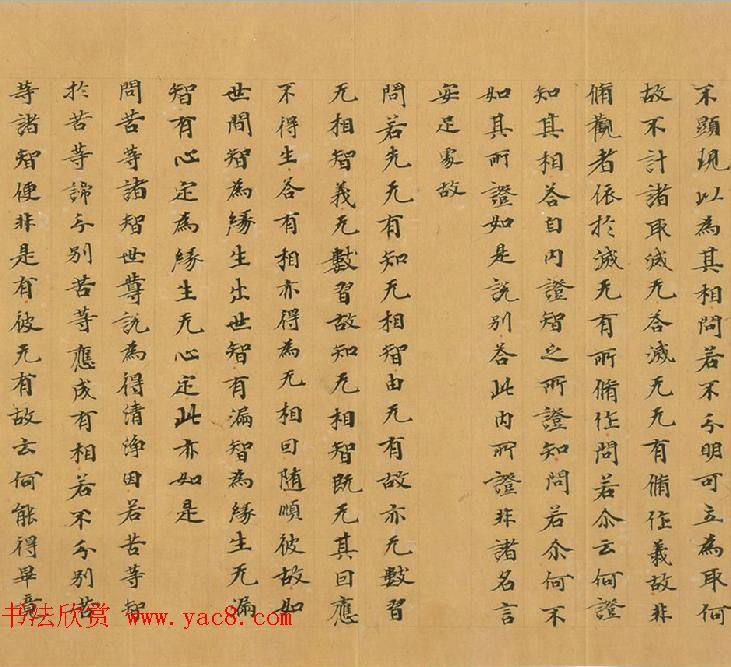 不顯現以為其相問若不分明可立為取何
故不計諸取滅无答滅无无有脩作義故非
脩觀者依於滅无有所脩作問若尒云何證
知其相答自内證智之所證知問若尒何不
如其所證如是說別答此内所證非諸名言
安足處故
問若无无有知无相智由无有故亦无數習
无相智義无數習故知无相智既无其因應
不得生答有相亦得為无相因随順彼故如
世間智為緣生出世智有漏智為緣生无漏
智有心定為緣生无心定此亦如是
問苦等諸智世尊說為得清淨因若苦等智
於苦等諦分別苦等應成有相若不分別苦
等諸智便非是有彼无有故云何能得畢竟
书法欣赏 www.yac8.com